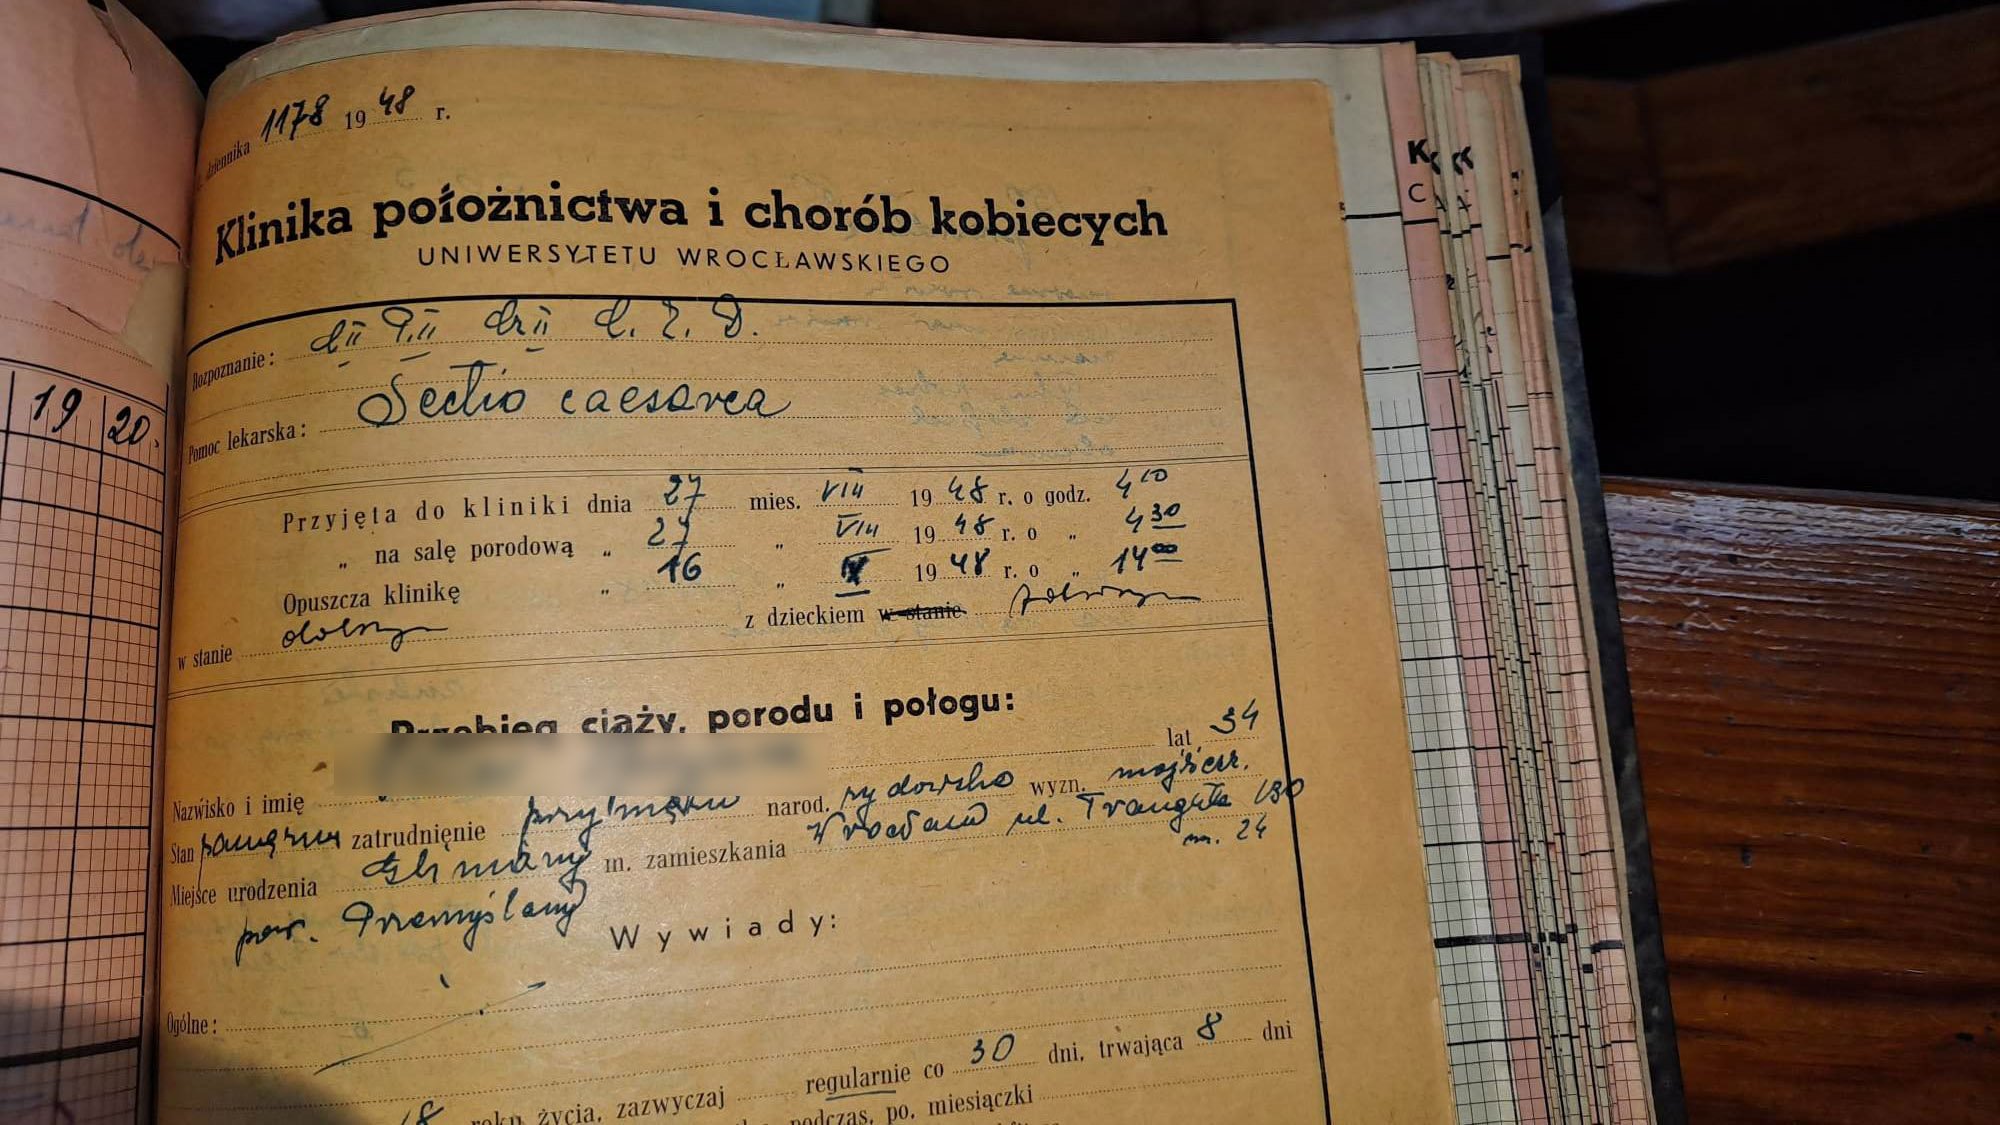 19 20.
dziennika 1178 1948 r.
Klinika położnictwa i chorób kobiecych
UNIWERSYTETU WROCŁAWSKIEGO
Rozpoznanie:
Sectio caesarea
Pomoc lekarska:
Przyjęta do kliniki dnia 27 mies. VIII 1948 r. o godz. 4 10
„ na salę porodową „ 27 „ VIII 1948 r. o „ 4 30
Opuszcza klinikę „ 16 „ 1948 r. o „ 14 00
w stanie dobrym z dzieckiem w stanie zdrowym
Przebieg ciąży, porodu i połogu:
Nazwisko i imię lat 34
Stan zamężna zatrudnienie przy mężu narod. żydowska wyzn. mojżesz.
Miejsce urodzenia Gliniany m. zamieszkania Wrocław ul. Traugutta 130
m. 24
pow. Przemyślany
Wywiady:
Ogólne:
18 roku życia, zazwyczaj regularnie co 30 dni, trwająca 8 dni
podczas, po, miesiączki
K
C